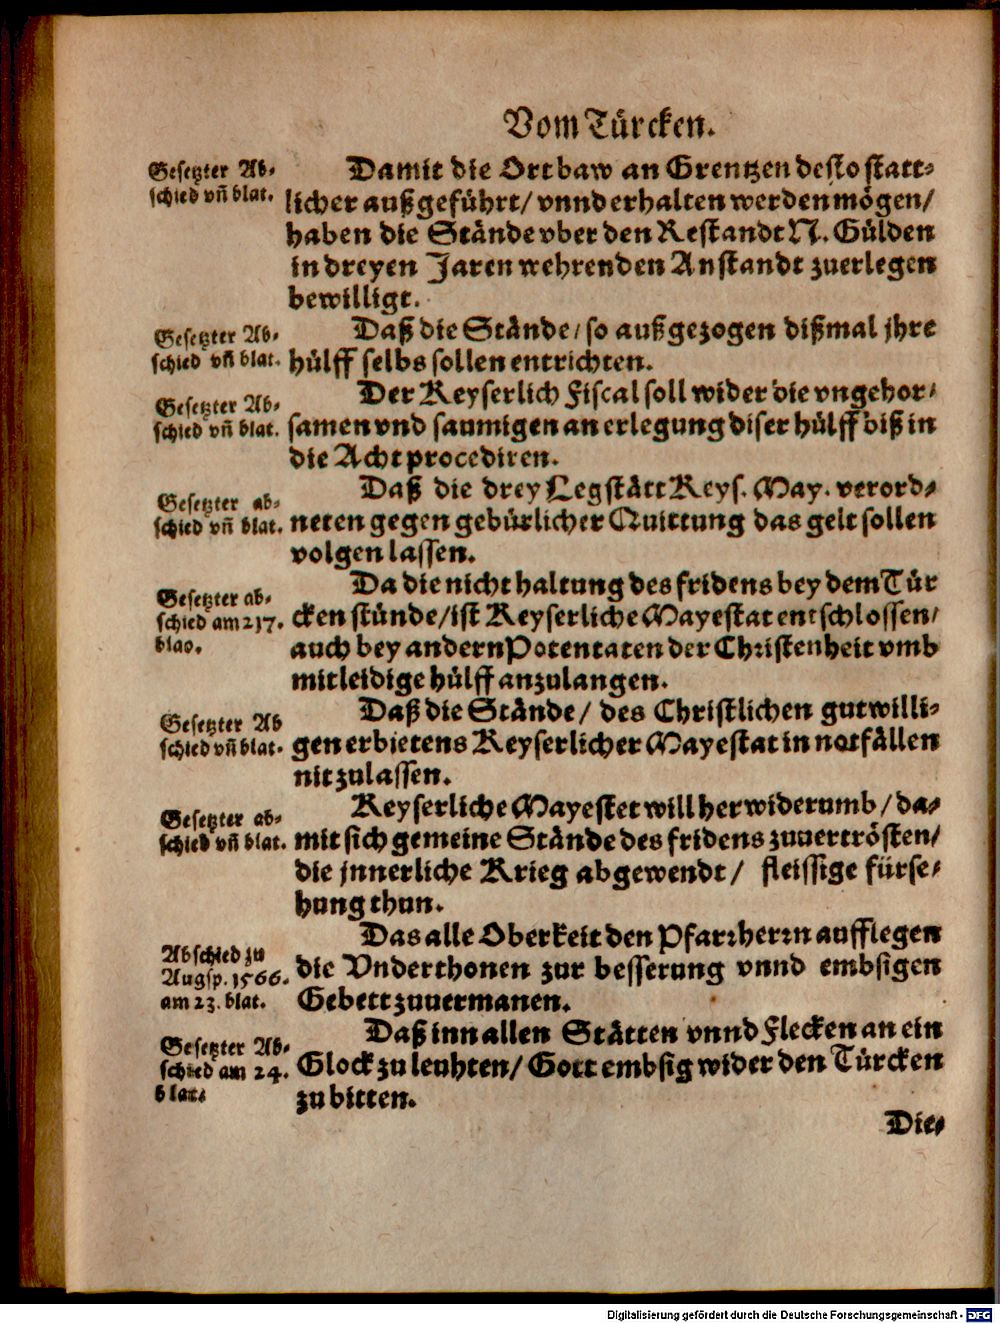 Vom Türcken.
Gesetzter Ab-
schied vñ blat.
Damit die Ortbaw an Grentzen desto statt-
licher außgeführt/ vnnd erhalten werden mögen/
haben die Stände vber den Restandt N. Gülden
in dreyen Jaren wehrenden Anstandt zuerlegen
bewilligt.
Gesetzter Ab-
schied vñ blat.
Daß die Stände/ so außgezogen dißmal jhre
hülff selbs sollen entrichten.
Gesetzter Ab-
schied vñ blat.
Der Keyserlich Fiscal soll wider die vngehor-
samen vnd saumigen an erlegung diser hülff biß in
die Acht procediren.
Gesetzter ab-
schied vñ blat.
Daß die drey Legstätt Keys. May. verord-
neten gegen gebürlicher Quittung das gelt sollen
volgen lassen.
Gesetzter ab-
schied am 217.
blao.
Da die nicht haltung des fridens bey dem Tür
cken stünde/ ist Keyserliche Mayestat entschlossen/
auch bey andern Potentaten der Christenheit vmb
mitleidige hülff anzulangen.
Gesetzter Ab
schied vñ blat.
Daß die Stände/ des Christlichen gutwilli-
gen erbietens Keyserlicher Mayestat in notfällen
nit zulassen.
Gesetzter ab-
schied vñ blat.
Keyserliche Mayestet will herwiderumb/ da-
mit sich gemeine Stände des fridens zuuertrösten/
die jnnerliche Krieg abgewendt/ fleissige fürse-
hung thun.
Abschied zu
Augsp. 1566.
am 23. blat.
Das alle Oberkeit den Pfarrherrn aufflegen
die Vnderthonen zur besserung vnnd embsigen
Gebett zuuermanen.
Gesetzter Ab-
schied am 24.
blat.
Daß inn allen Stätten vnnd Flecken an ein
Glock zu leuhten/ Gott embsig wider den Türcken
zu bitten.
Die-
Digitalisierung gefördert durch die Deutsche Forschungsgemeinschaft - DFG